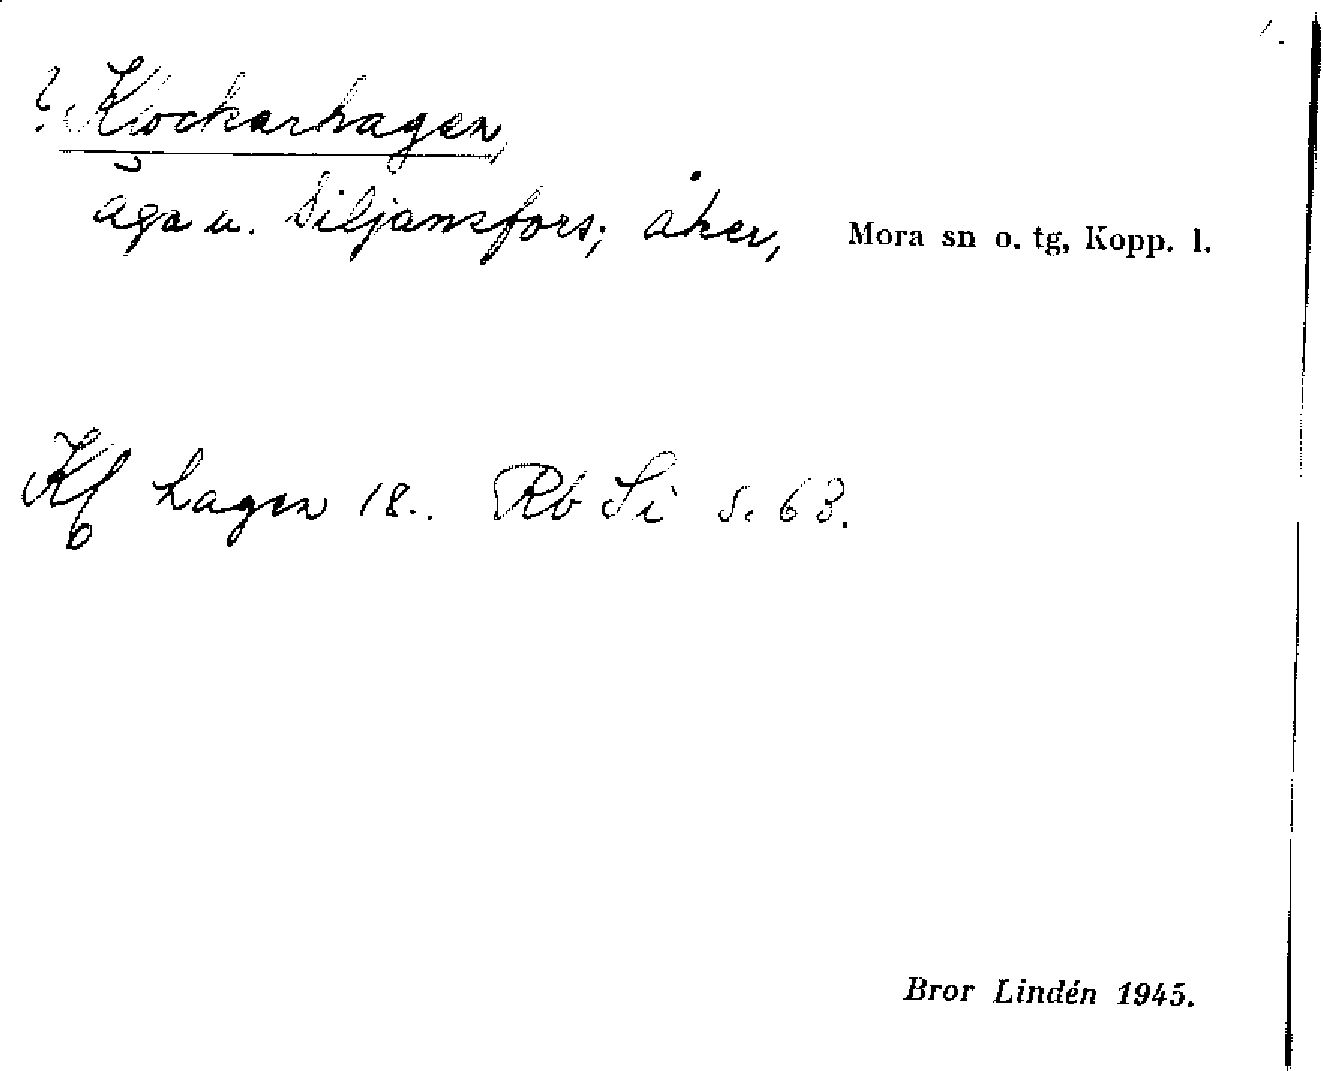 ? Klockarhagen
äga u. Siljansfors; åker, Mora sn o. tg, Kopp. l.
hagen 18.. Rb Si s. 63.
Bror Lindén 1945.